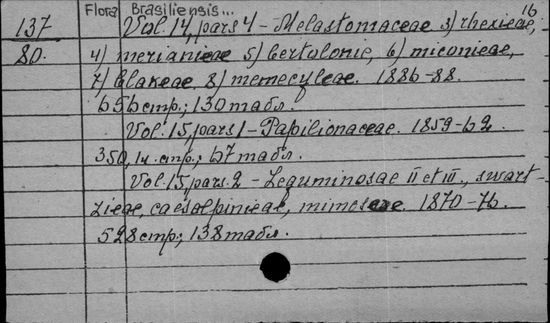 Flora Brasiliensis... 16
137 Vol. 14, pars 4 - Melastomaceae 3) rhexieae,
80. 4) merianieae 5) bertolonie, 6) miconieae,
7) blakeae. 8) memecyleae. 1886-88.
656 стр.; 130 табл.
Vol. 15, pars 1 - Papilionaceae. 1859-62
350, IV. стр.; 67 табл.
Vol. 15, pars. 2 - Leguminosae II et III., swart-
zieae, caesalpinieae, mimoseae. 1870-76.
528 стр.; 138 табл.